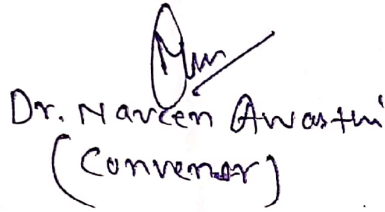 Dr. Naveen Awasthi
(Convenor)